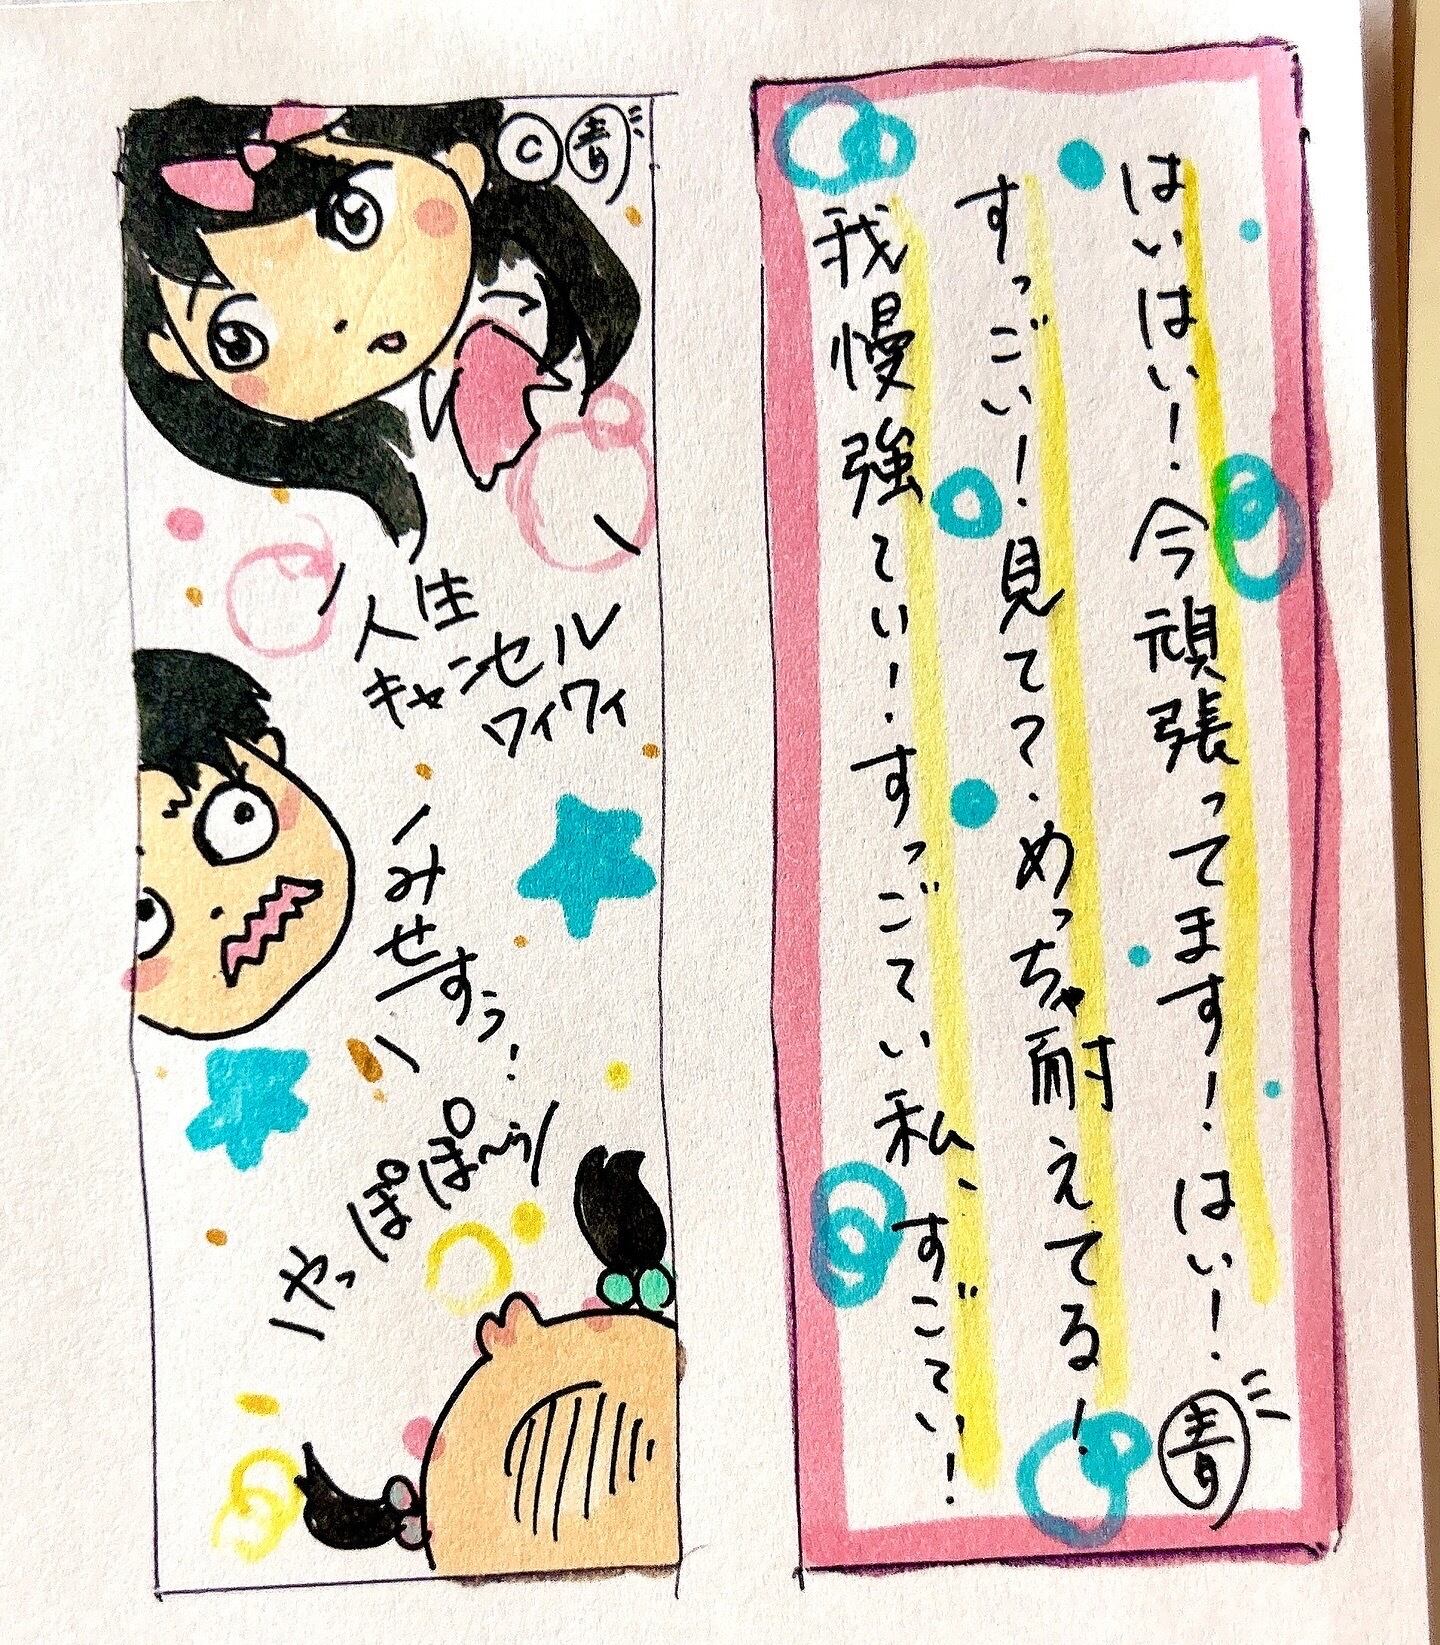 はいはい！今頑張ってます！はい！
すっごい！見てて？めっちゃ耐えてる！
我慢強てい！すっごてい私、すごてい！
青
ⓒ青
人生
キャンセル
ワイワイ
みせすぅ！
やっぽぽぽ〜ぅ